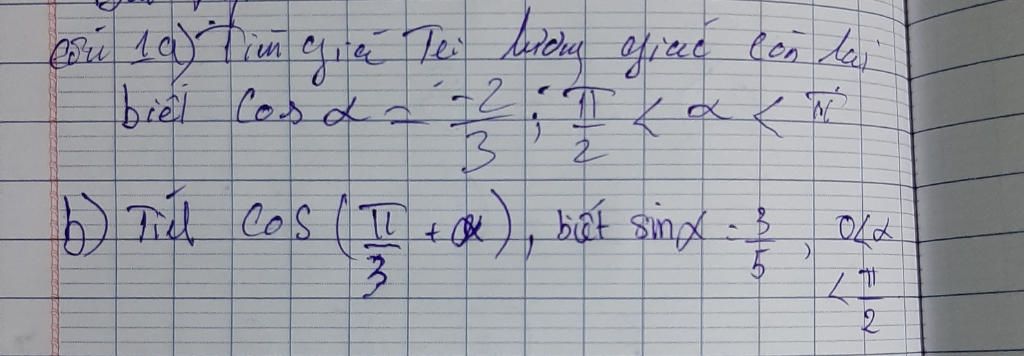 câu 1a) Tìm giá Trị lượng giác còn lại
biết cos α = -2/3 ; π/2 < α < π
b) Tính cos (π/3 + α), biết sinα = 3/5, 0<α
< π/2